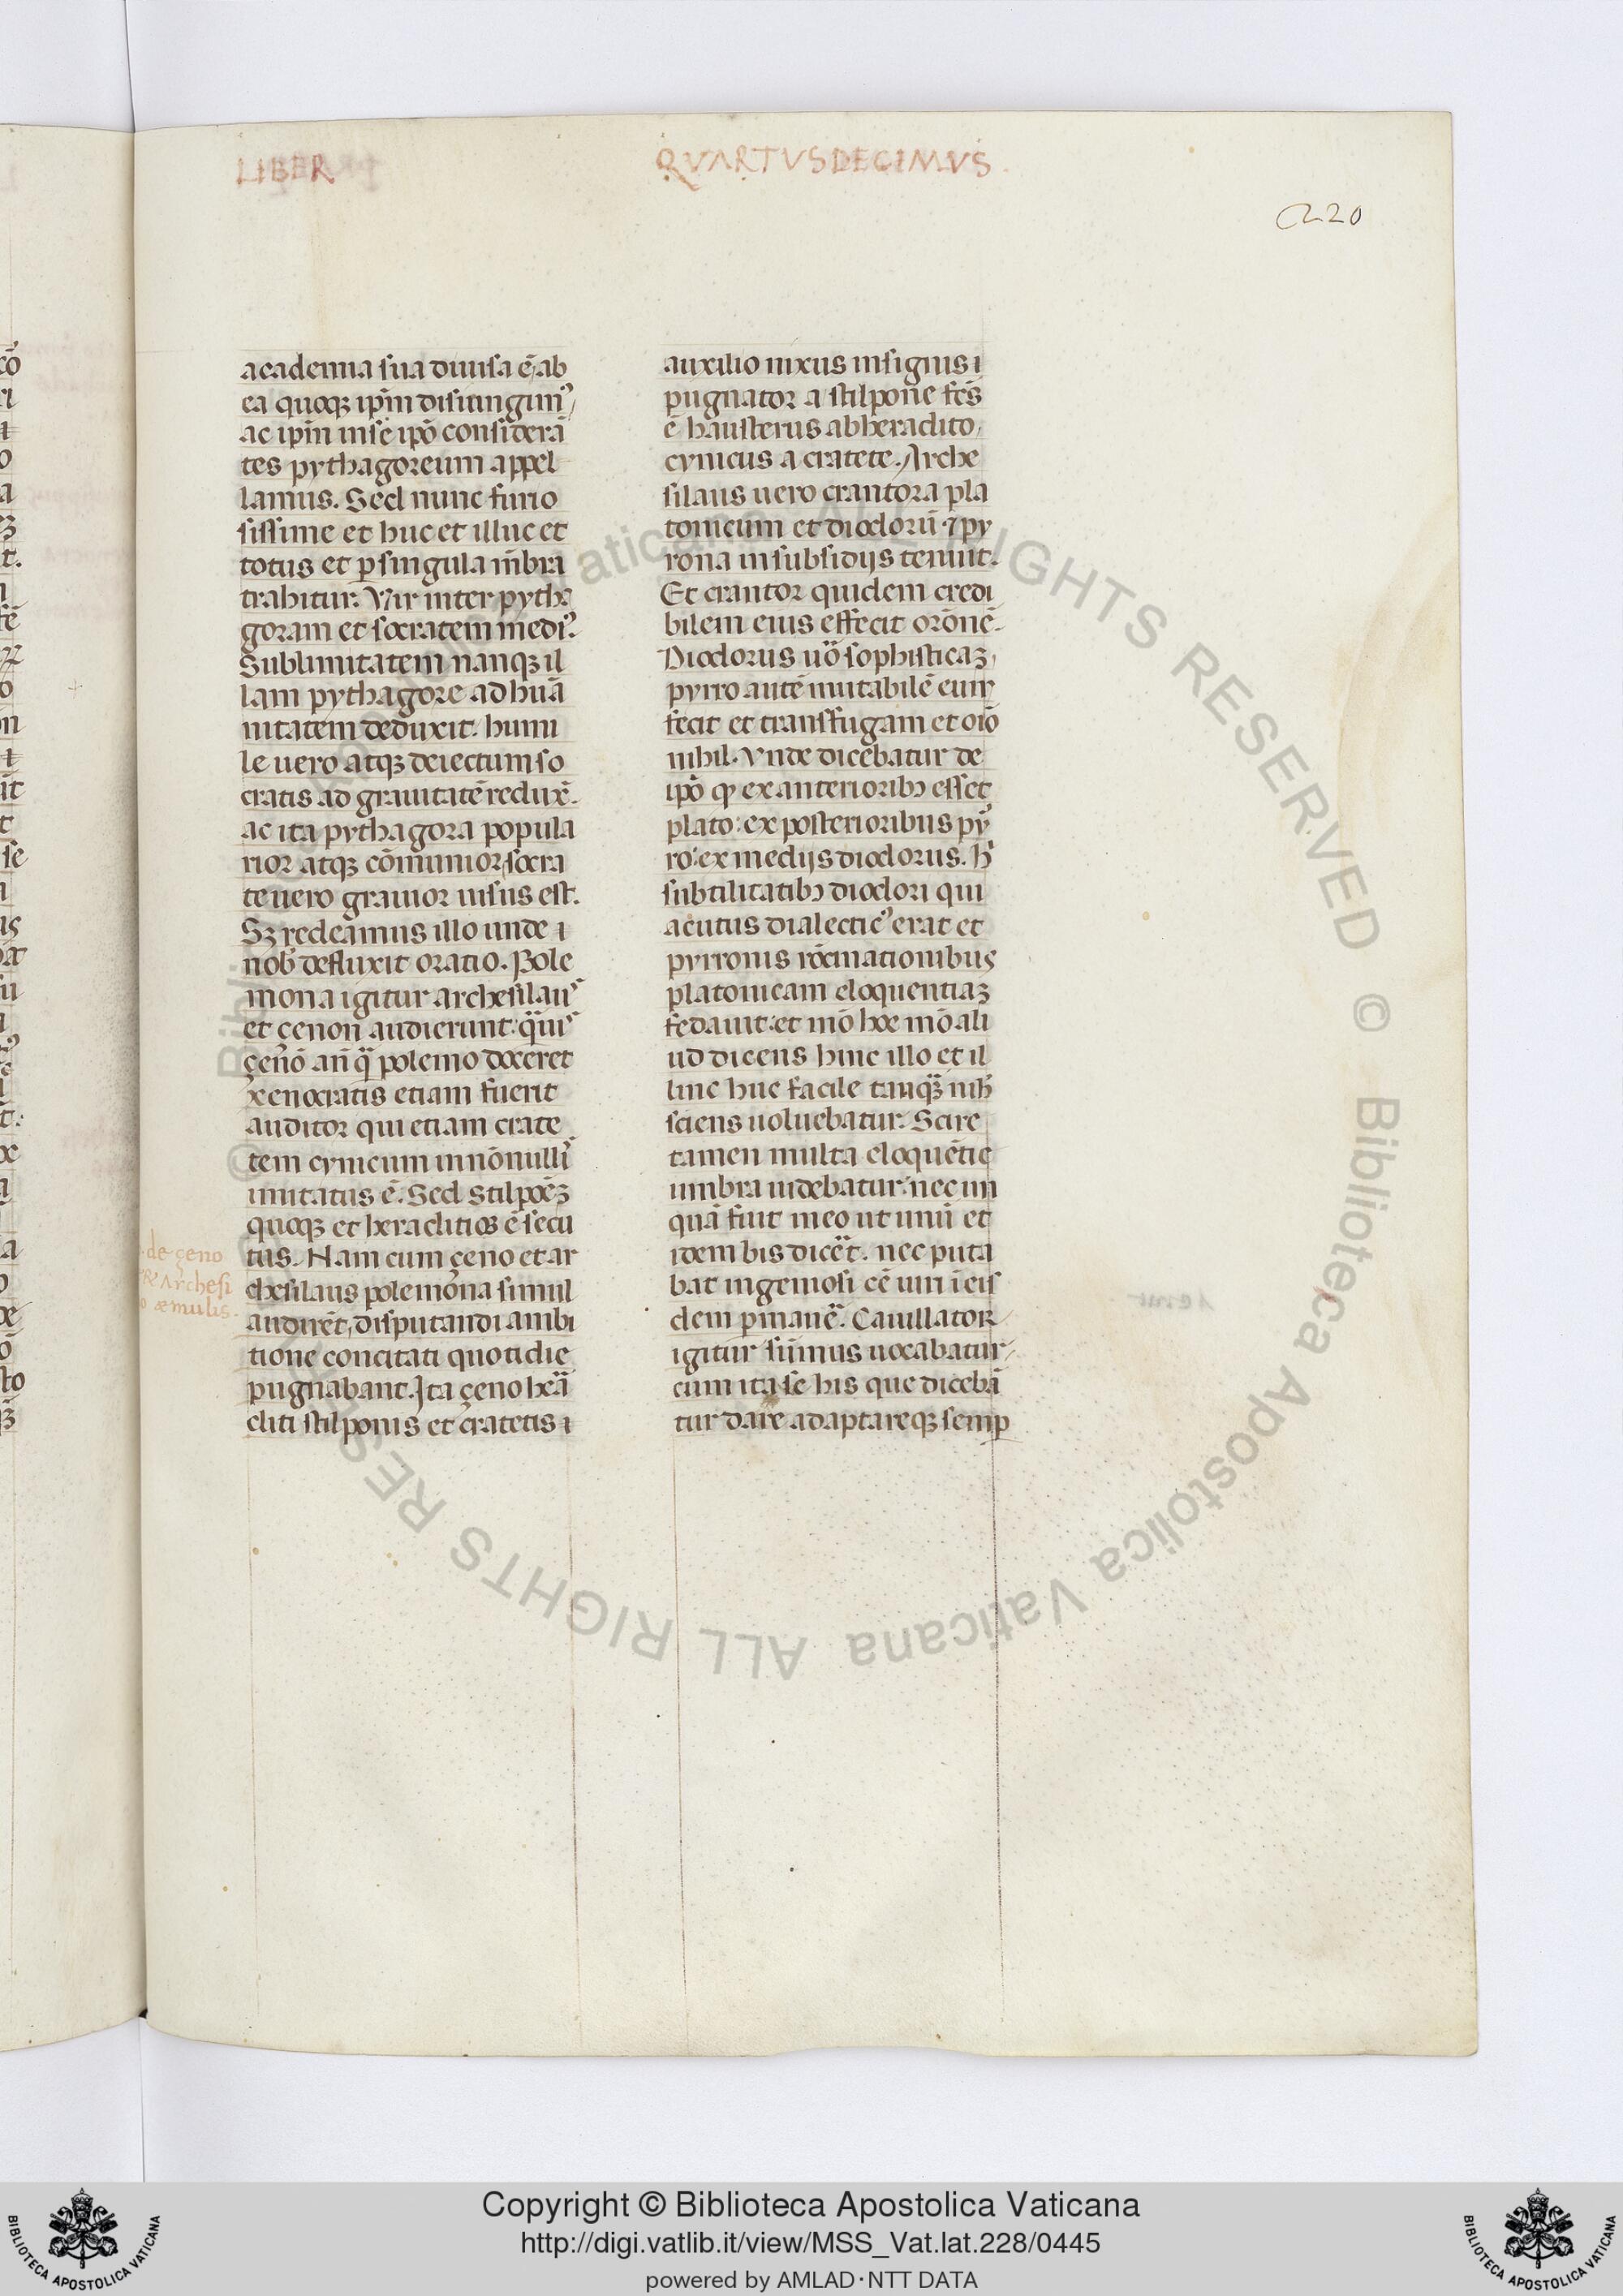 LIBER
QVARTVSDECIMVS
220
academia sua diuisa ē, ab
ea quoqꝫ ip̄m disiungim᷒,
ac ip̄m in se ip̄o considerā
tes pythagoreum appel
lamus. Sed nunc furio
sissime et huc et illuc et
totus et ꝑ singula mēbra
trahitur. Vir inter pytha
goram et socratem medi᷒.
Sublimitatem nanqꝫ il
lam pythagore ad huā
nitatem deduxit: humi
le uero atqꝫ deiectum so
cratis ad grauitatē reduxͥ.
ac ita pythagora popula
rior atqꝫ cōmunior, socra
te uero grauior uisus est.
Sꝫ redeamus illo unde i
nob̄ defluxit oratio. Pole
mona igitur archesilaus
et çenon audierunt: qͣuis
çeno an̄ qͣ polemo doceret
xenocratis etiam fuerit
auditor qui etiam crate
tem cynicum in nōnullis
imitatus ē. Sed stilpoēꝫ
quoqꝫ et heraclitios ē secu
tus. Nam cum çeno et ar
chesilaus polemona simul
audirēt, disputandi ambi
tione concitati quotidie
pugnabant. Ita çeno heͣ
cliti stilponis et cratetis i
de çeno
& Archesi
o æmulis.
auxilio nixus insignis i
pugnator a stilpone fc̄s
ē hausterus ab heraclito,
cynicus a cratete. Arche
silaus uero crantora pla
tonicum et diodorū ⁊ py
rona in subsidijs tenuit.
Et crantor quidem credi
bilem eius effecit or̄onē.
Diodorus uō sophisticaꝫ,
pyrro autē mutabilē eum
fecit et transfugam et oīo
nihil. Vnde dicebatur de
ip̄o ꝙ ex anterioribꝫ esset
plato: ex posterioribus py
ro: ex medijs diodorus. H᷒
subtilitatibꝫ diodori qui
acutus dialectic᷒ erat et
pyrronis rōcinationibus
platonicam eloquentiaꝫ
fedauit: et mō hoc mō ali
ud dicens hinc illo et il
linc huc facile tanqͣꝫ nih̄
sciens uoluebatur. Scire
tamen multa eloquētię
umbra uidebatur: nec un
quā fuit meo ut unū et
idem bis dicͥet. nec puta
bat ingeniosi cē uiri ī eis
dem ꝑmanēͤ. Cauillator
igitur sūmus uocabatur,
cum ita se his que dicebā
tur dare adaptareqꝫ semꝑ
© Biblioteca Apostolica Vaticana ALL RIGHTS RESERVED © Biblioteca Apostolica Vaticana ALL RIGHTS RESERVED
Copyright © Biblioteca Apostolica Vaticana
http://digi.vatlib.it/view/MSS_Vat.lat.228/0445
powered by AMLAD·NTT DATA
BIBLIOTECA APOSTOLICA VATICANA
BIBLIOTECA APOSTOLICA VATICANA